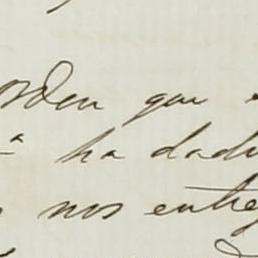 orden que
ª ha dado
nos entre